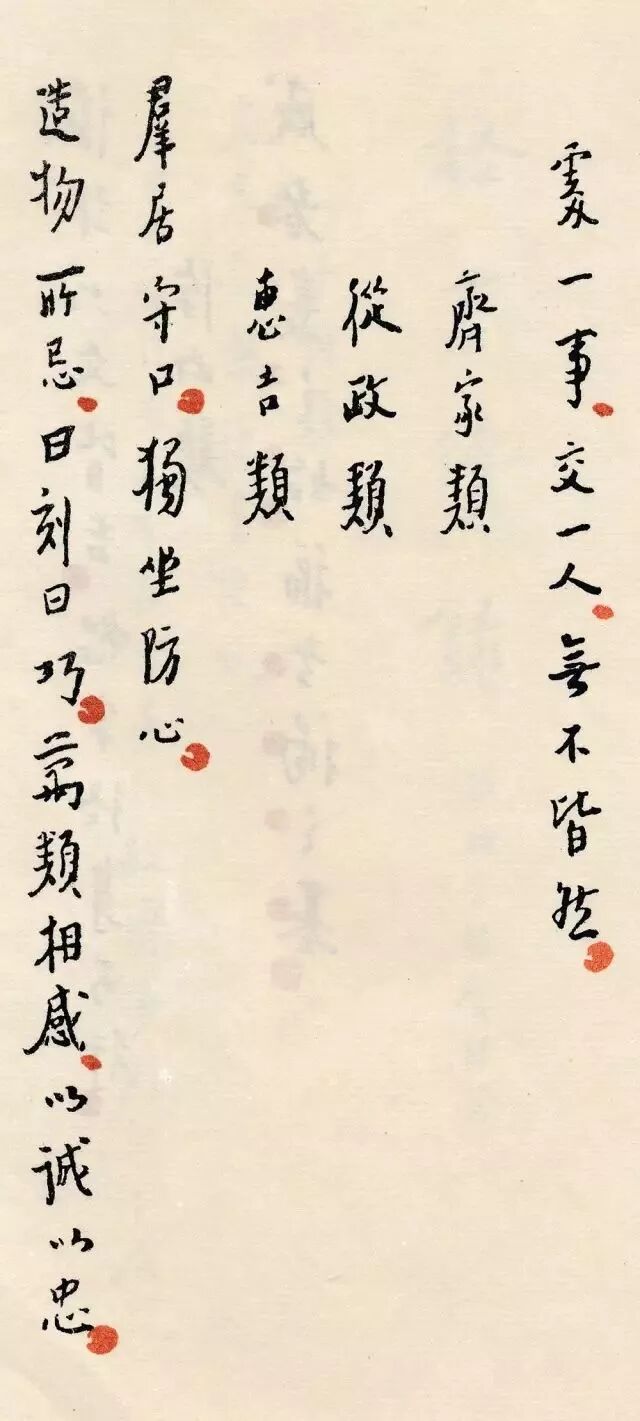 處一事。交一人。無不皆然。
齊家類
從政類
惠吉類
羣居守口。獨坐防心。
造物所忌。曰刻曰巧。萬類相感。以誠以忠。